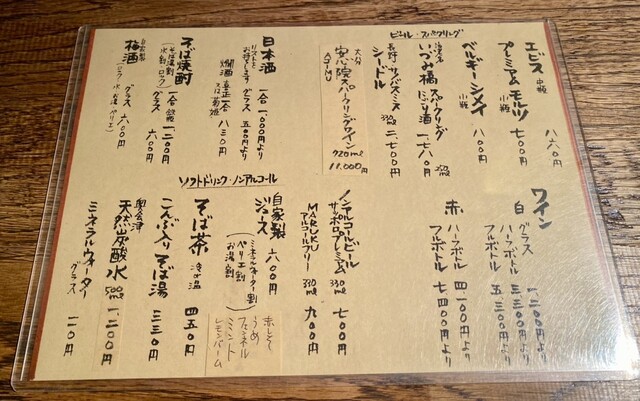 ビール・スパークリング
エビス 中瓶 八六〇円
プレミアムモルツ 小瓶 七〇〇円
ベルギーシメイ 小瓶 八〇〇円
いづみ橋 スパークリングにごり酒 250ml 一、七八〇円
長野 サンバスミス
シードル 330ml 二、七〇〇円
大分
安心院スパークリングワイン
AJIMU 720ml 11,000円
日本酒 一合 一、〇〇〇円より
リストよりお持ちします グラス 五〇〇円より
燗酒 一合 八三〇円
そば焼酎 一合 一、二〇〇円
(そば湯割 水割 ロック) グラス 六〇〇円
自家製
梅酒 グラス 六〇〇円
(ロック 水 お湯 ペリエ)
ワイン
白 グラス 一、二〇〇円より
ハーフボトル 三、三〇〇円より
フルボトル 五、三〇〇円より
赤 ハーフボトル 四、一〇〇円より
フルボトル 七、四〇〇円より
ソフトドリンク・ノンアルコール
ノンアルコールビール
サッポロプレミアム 330ml 七〇〇円
MARUKU
アルコールフリー 330ml 九〇〇円
自家製
ジュース 六〇〇円
(ミネラルウォーター割
ペリエ割
お湯割)
赤しそ
うめ
フェンネル
ミント
レモンバーム
そば茶 冷or温 四五〇円
こんぶ入りそば湯 三三〇円
奥会津
天然炭酸水 500ml 一、二〇〇円
ミネラルウォーター グラス 一一〇円